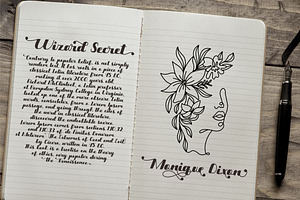 Wizard Secret
Contrary to popular belief, is not simply
random text. It has roots in a piece of
classical Latin literature from 45 BC,
making it over 2000 years old.
Richard McClintock, a Latin professor
at Hampden Sydney College in Virginia,
looked up one of the more obscure Latin
words, consectetur, from a Lorem Ipsum
passage, and going through the cites of
the word in classical literature,
discovered the undoubtable source.
Lorem Ipsum comes from sections 1.10.32
and 1.10.33 of de Finibus Bonorum
et Malorum (The Extremes of Good and Evil)
by Cicero, written in 45 BC.
This book is a treatise on the theory
of ethics, very popular during
the Renaissance.
Monique Dixon